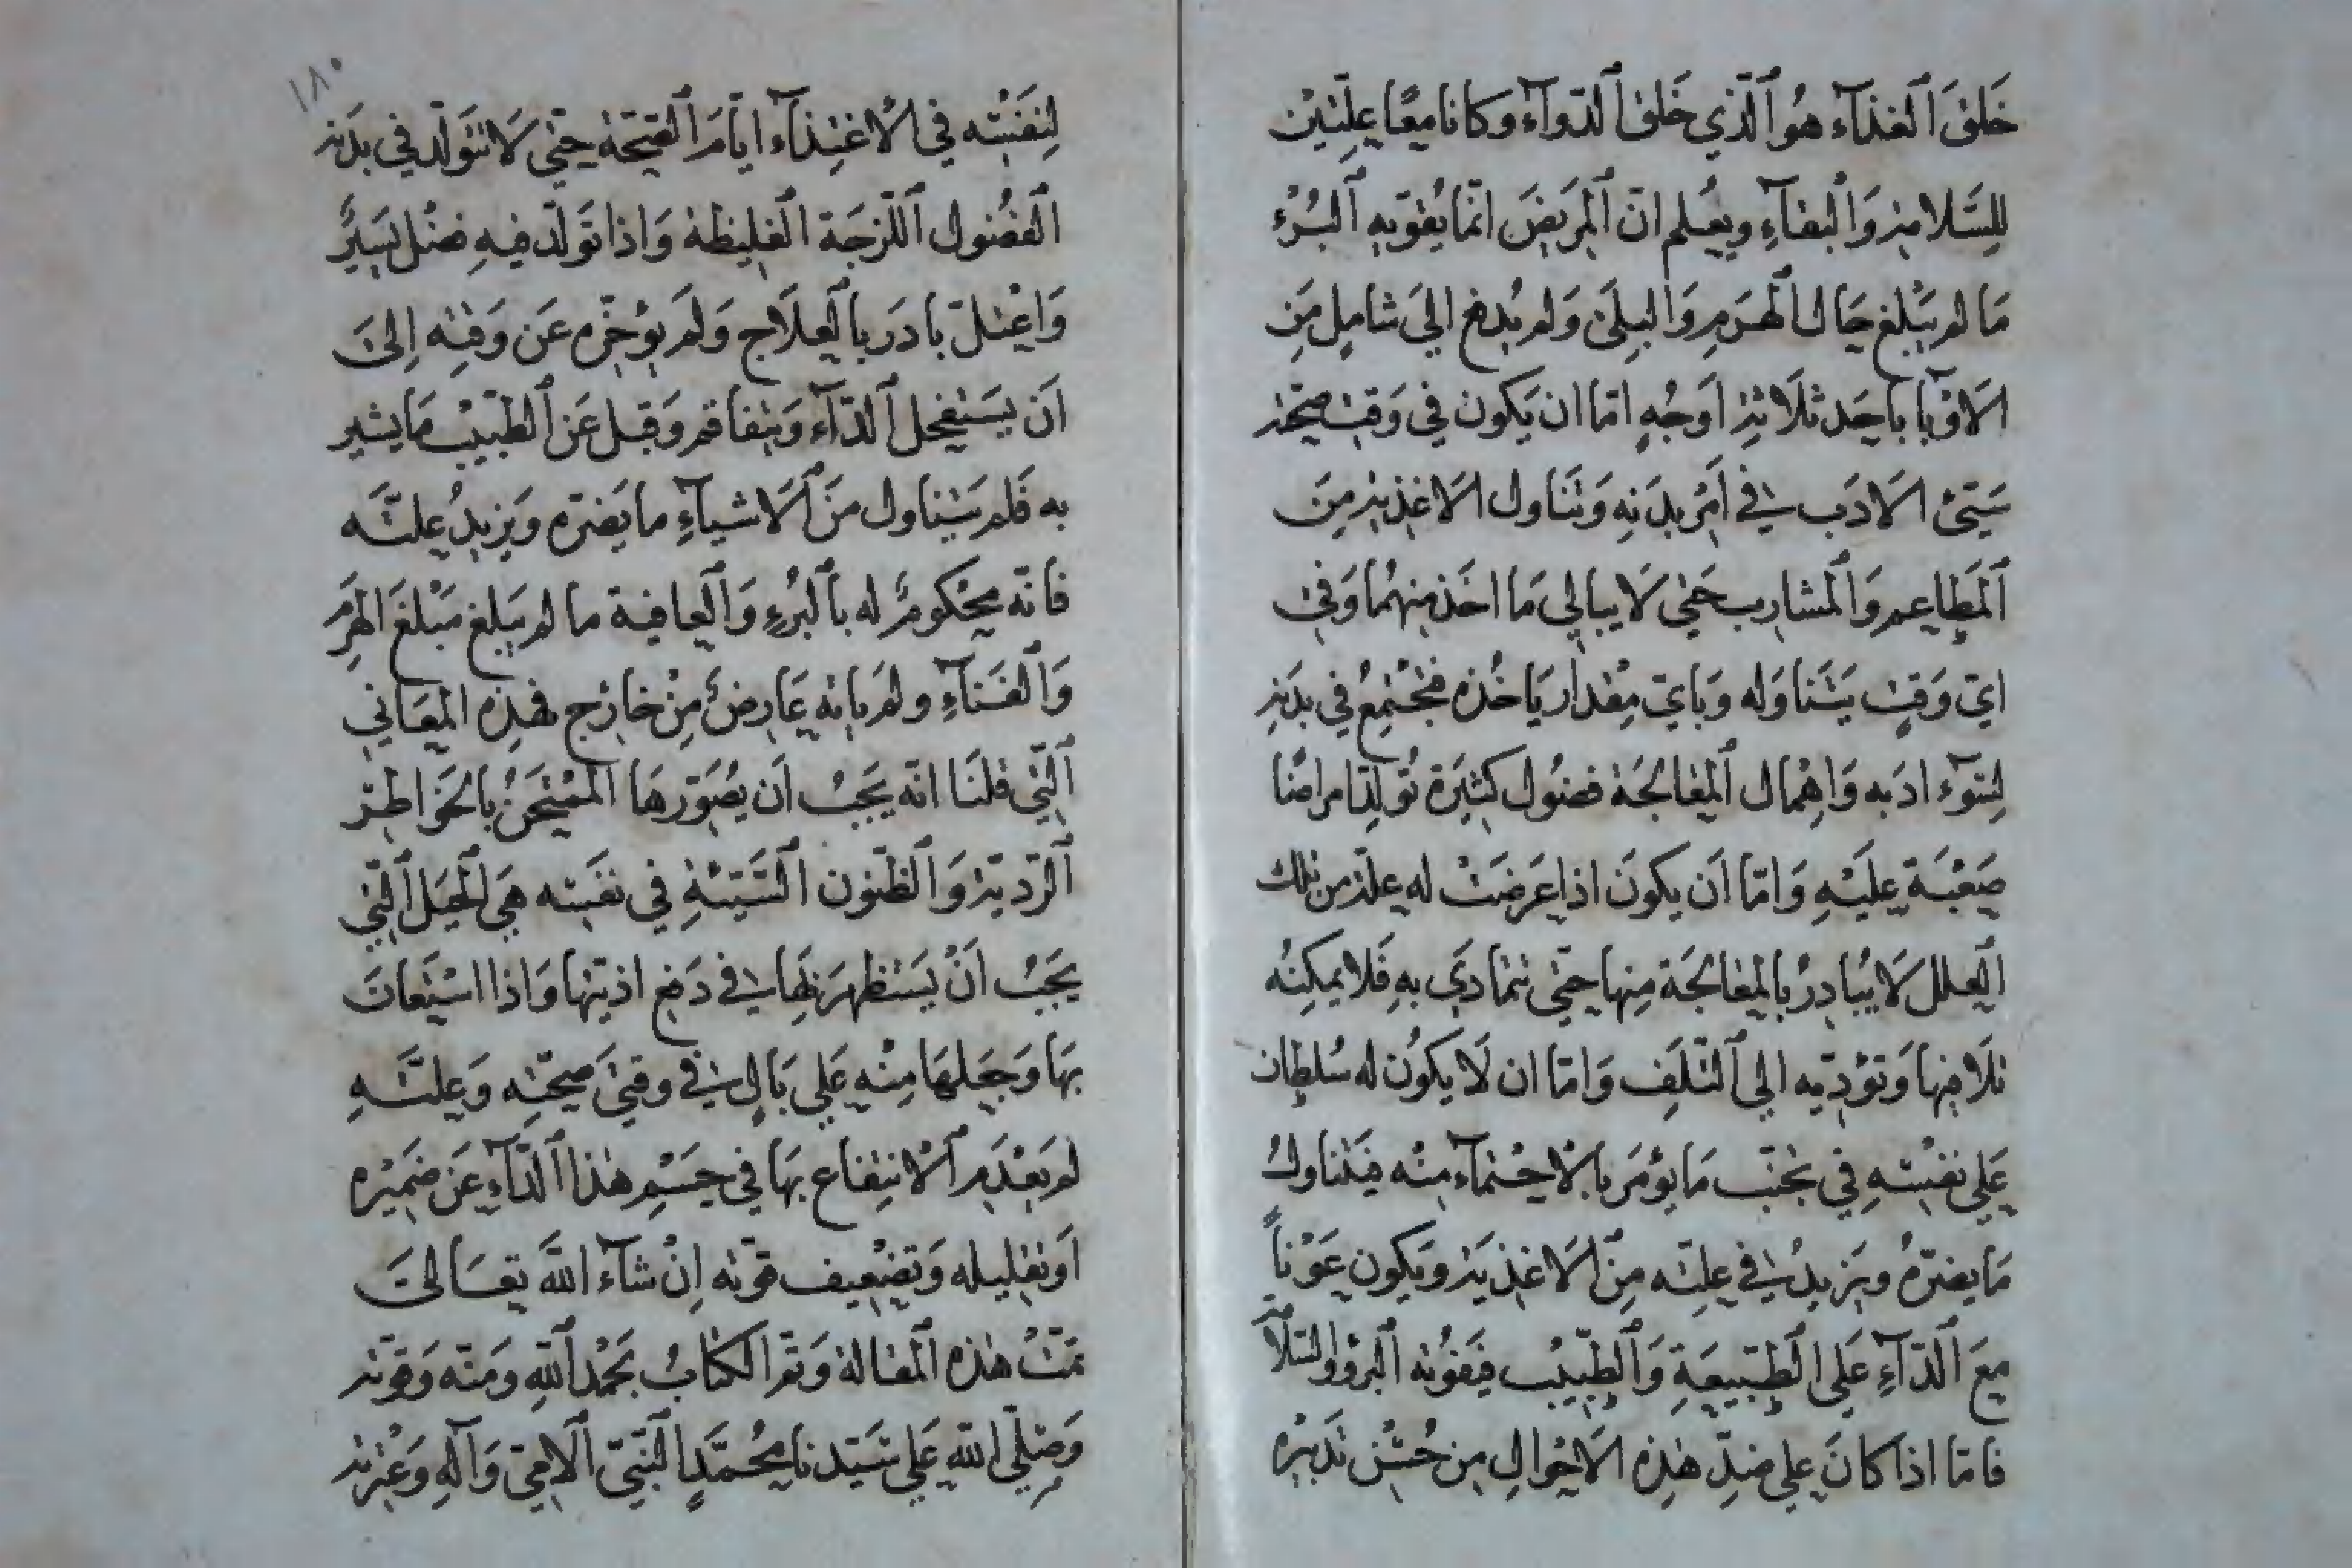 خَلَقَ ٱلغذآء هُو ٱلّذي خَلق ٱلدّوآء وكانا معًا علّتين
للسّلامة وَٱلبقآءِ ويعلم انّ ٱلمَريضَ انّما يُفوّته ٱلبُرْء
مَا لم يَبلغ حَال ٱلهَرَمِ وَٱلبِلَى وَلم يُدفع الىَ شامِلٍ مَن
الاوْبآ بأحَد ثلَاثةِ اوجُهٍ امّا ان يَكون في وَقت صحّته
سَيّئ الادَب في اَمْر بدَنِه وَتَناول الاغذيةِ مِنَ
ٱلمَطاعم وَٱلمشارب حَتى لَا يبالي مَا اخَذ منهُما وَفي
ايّ وَقتٍ يَتَناوَله وَبايّ مِقدار يَاخُذه فتجْتمِعُ في بدَنه
لسُوٓء ادَبه وَاهْمال ٱلمعالجَة فضُول كثيَرة تُولِدّ امراضًا
صَعْبَة عليَهِ وَامّا اَن يكونَ اذا عَرضَتْ له علّة من تلك
العلل لَا يُبادِرُ بالمعالجَة مِنها حتى تتمادَي بهِ فَلا يمكِنُه
تلافيها وَتؤدّيه الي ٱلتّلَفِ وَامّا ان لَا يكُون له سُلطان
عَلي نفسْهِ في تجنّب مَا يؤمَر بالاحْتمآء مِنْه فيَتناولُ
مَا يضرّهُ ويَزيدُ في علتّه مِنَ ٱلاغذيَة وَيكون عَوْناً
معَ ٱلدّآءِ عَلي ٱلطبّيعَةِ وَٱلطبّيب فيَفوُته ٱلبرؤ والسّلامة
فامّا اذا كانَ علي ضِدّ هٰذِه الاحْوالِ من حُسْن تَدبيرْه
١٨٠
لنِفَسْه في الاغتِذآء ايّامَ ٱلصّحّة حتّى لَا تتَولّد في بدَنه
ٱلفضُول ٱللّزجَة ٱلغليظة وَاذا تَولّد فيهِ فضْل يَسيرٌ
وَاعْتلّ بادَر بٱلعلَاج وَلَم يؤخّره عَن وَقتِه اِلىَ
اَن يَستفحل ٱلدّآء وَيتفاقم وَقبل عَن ٱلطّبيبْ مَا يشير
به فَلم يَتناول مَنَ ٱلاشيآءِ ما يَضرّه وَيزيدُ علتَّه
فانّه محْكومٌ له بٱلبُرْءِ وَٱلعافية ما لم يَبلغ مَبْلغَ الهَرَم
وَٱلفَنآءِ ولم ياته عَارضٌ مِنْ خارج فهذِه المعَاني
ٱلتّي قلنَا انّه يَجَبُ اَن يصُوّرهَا ٱلممْتَحَنُ بالخَواطِر
ٱلرّديّة وَٱلظّنون ٱلسّيّئةِ في نفَسْه هيَ ٱلحيَل ٱلتّي
يجَبُ اَنْ يَستظهرَ بهَا في دَفع اذيّتها وَاذا اسْتَعانَ
بهَا وَجَعلهَا مِنْه عَلي بَالٍ في وقتيَ صحّتِه وَعلتَّهِ
لم يَعْدَمِ ٱلانتِفاع بهَا في حَسْمِ هٰذا ٱلدّآءِ عَن ضَميرْه
اوَ تقليله وَتضْعيف قوّته اِنْ شآء اللّٰهَ تعَالىَ
تمّتْ هٰذه المقالة وَتمّ الكتابُ بحَمْد ٱللّٰهِ ومَنّه وَقوّته
وَصَلّي اللّٰه عَلي سَيّدنا محُمَّدٍ ٱلنّبيّ ٱلامّيّ وَآلهِ وَعْترته